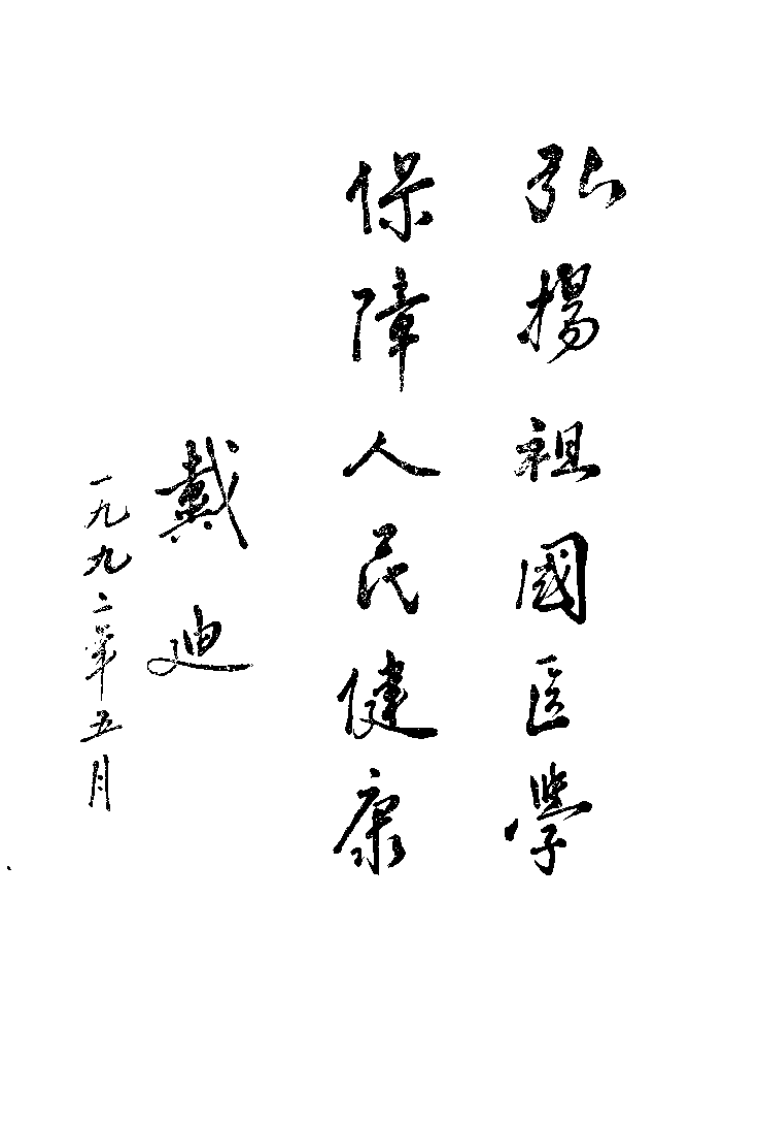 弘揚祖國医學
保障人民健康
戴迪
一九九二年五月